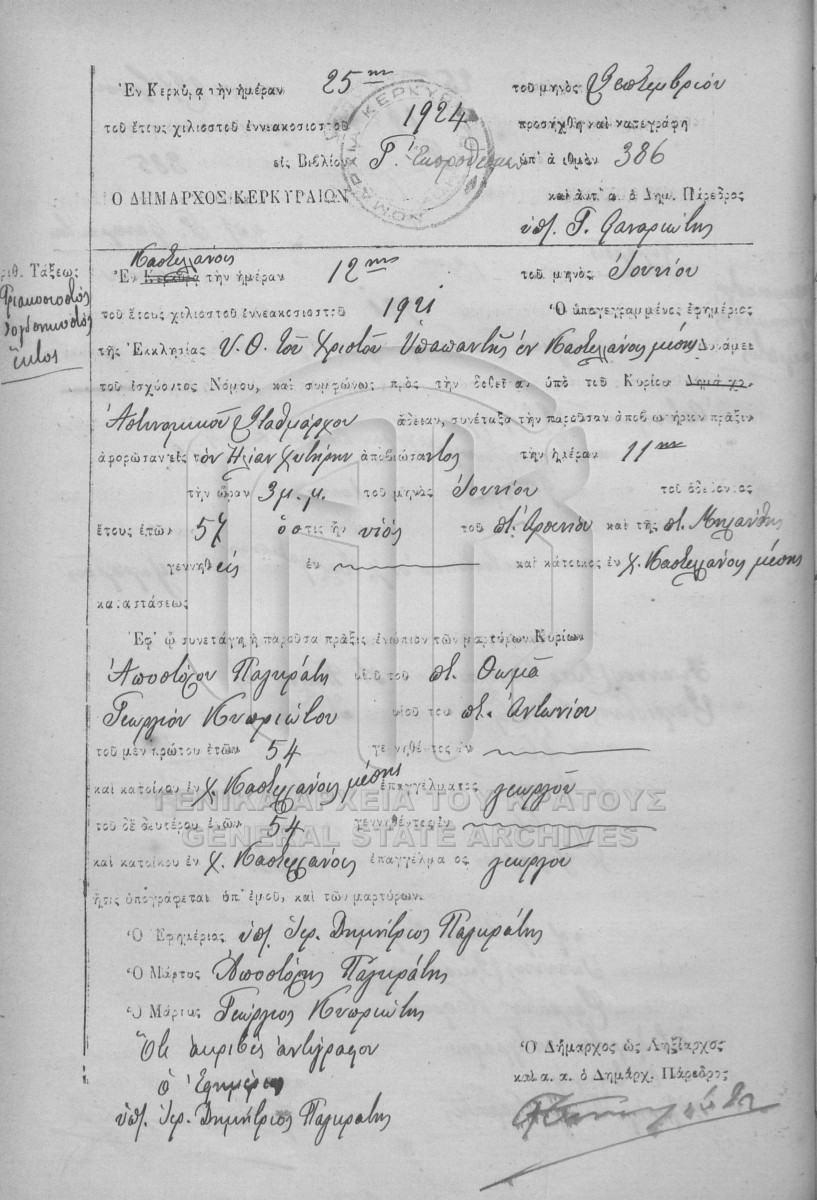 Ἐν Κερκύρᾳ τὴν ἡμέραν 25ην τοῦ μηνὸς Σεπτεμβρίου
τοῦ ἔτους χιλιοστοῦ ἐννεακοσιοστοῦ 1924 προσήχθη καὶ κατεγράφη
εἰς Βιβλίον Γ. Ἐκπροθέσμων ὑπ' ἀριθμὸν 386
Ο ΔΗΜΑΡΧΟΣ ΚΕΡΚΥΡΑΙΩΝ καὶ ἀντ' α. ὁ Δημ. Πάρεδρος
ΝΟΜΑΡΧΙΑ ΚΕΡΚΥΡΑΣ
ὑπ. Γ. Φαναριώτης
ἀριθ. Τάξεως
Τριακοσιοστὸς
ὀγδοηκοστὸς
ἕκτος
Καστελλάνοις
Ἐν Κερκύρᾳ τὴν ἡμέραν 12ην τοῦ μηνὸς Ἰουνίου
τοῦ ἔτους χιλιοστοῦ ἐννεακοσιοστοῦ 1921 Ὁ ὑπογεγραμμένος ἐφημέριος
τῆς Ἐκκλησίας Υ. Θ. τοῦ Χριστοῦ Ὑπαπαντῆς ἐν Καστελλάνοις μέσης Δυνάμει
τοῦ ἰσχύοντος Νόμου, καὶ συμφώνως πρὸς τὴν δοθεῖσαν ὑπὸ τοῦ Κυρίου Δημάρχου
Ἀστυνομικοῦ Σταθμάρχου ἄδειαν, συνέταξα τὴν παροῦσαν ἀποβιωτήριον πρᾶξιν
ἀφορῶσαν εἰς τὸν Ηλίαν Χυτήρην ἀποβιώσαντος τὴν ἡμέραν 11ην
τὴν ὥραν 3 μ.μ. τοῦ μηνὸς Ἰουνίου τοῦ ὁδεύοντος
ἔτους ἐτῶν 57 ὅστις ἦν υἱὸς τοῦ πτ. Ἀρσενίου καὶ τῆς πτ. Μηλάνθης
γεννηθεὶς ἐν καὶ κάτοικος ἐν χ. Καστελλάνοις μέσης
καταστάσεως
Ἐφ' ᾧ συνετάγη ἡ παροῦσα πρᾶξις ἐνώπιον τῶν μαρτύρων Κυρίων
Ἀποστόλου Παγκράτη υἱοῦ τοῦ πτ. Θωμᾶ
Γεωργίου Κυπριώτου υἱοῦ του πτ. Ἀντωνίου
τοῦ μὲν πρώτου ἐτῶν 54 γεννηθέντος ἐν
καὶ κατοίκου ἐν χ. Καστελλάνοις μέσης ἐπαγγέλματος γεωργοῦ
ΓΕΝΙΚΑ ΑΡΧΕΙΑ ΤΟΥ ΚΡΑΤΟΥΣ
τοῦ δὲ δευτέρου ἐτῶν 54 γεννηθέντος ἐν
GENERAL STATE ARCHIVES
καὶ κατοίκου ἐν χ. Καστελλάνοις ἐπαγγέλματος γεωργοῦ
ἥτις ὑπογράφεται ὑπ' ἐμοῦ, καὶ τῶν μαρτύρων.
Ὁ Ἐφημέριος ὑπ. Ἱερ. Δημήτριος Παγκράτης
Ὁ Μάρτυς Ἀποστόλης Παγκράτης
Ὁ Μάρτυς Γεώργιος Κυπριώτης
Ὅτι ἀκριβὲς ἀντίγραφον
ὁ Ἐφημέριος
ὑπ. Ἱερ. Δημήτριος Παγκράτης
Ὁ Δήμαρχος ὡς Ληξίαρχος
καὶ α. α. ὁ Δημάρχ. Πάρεδρος